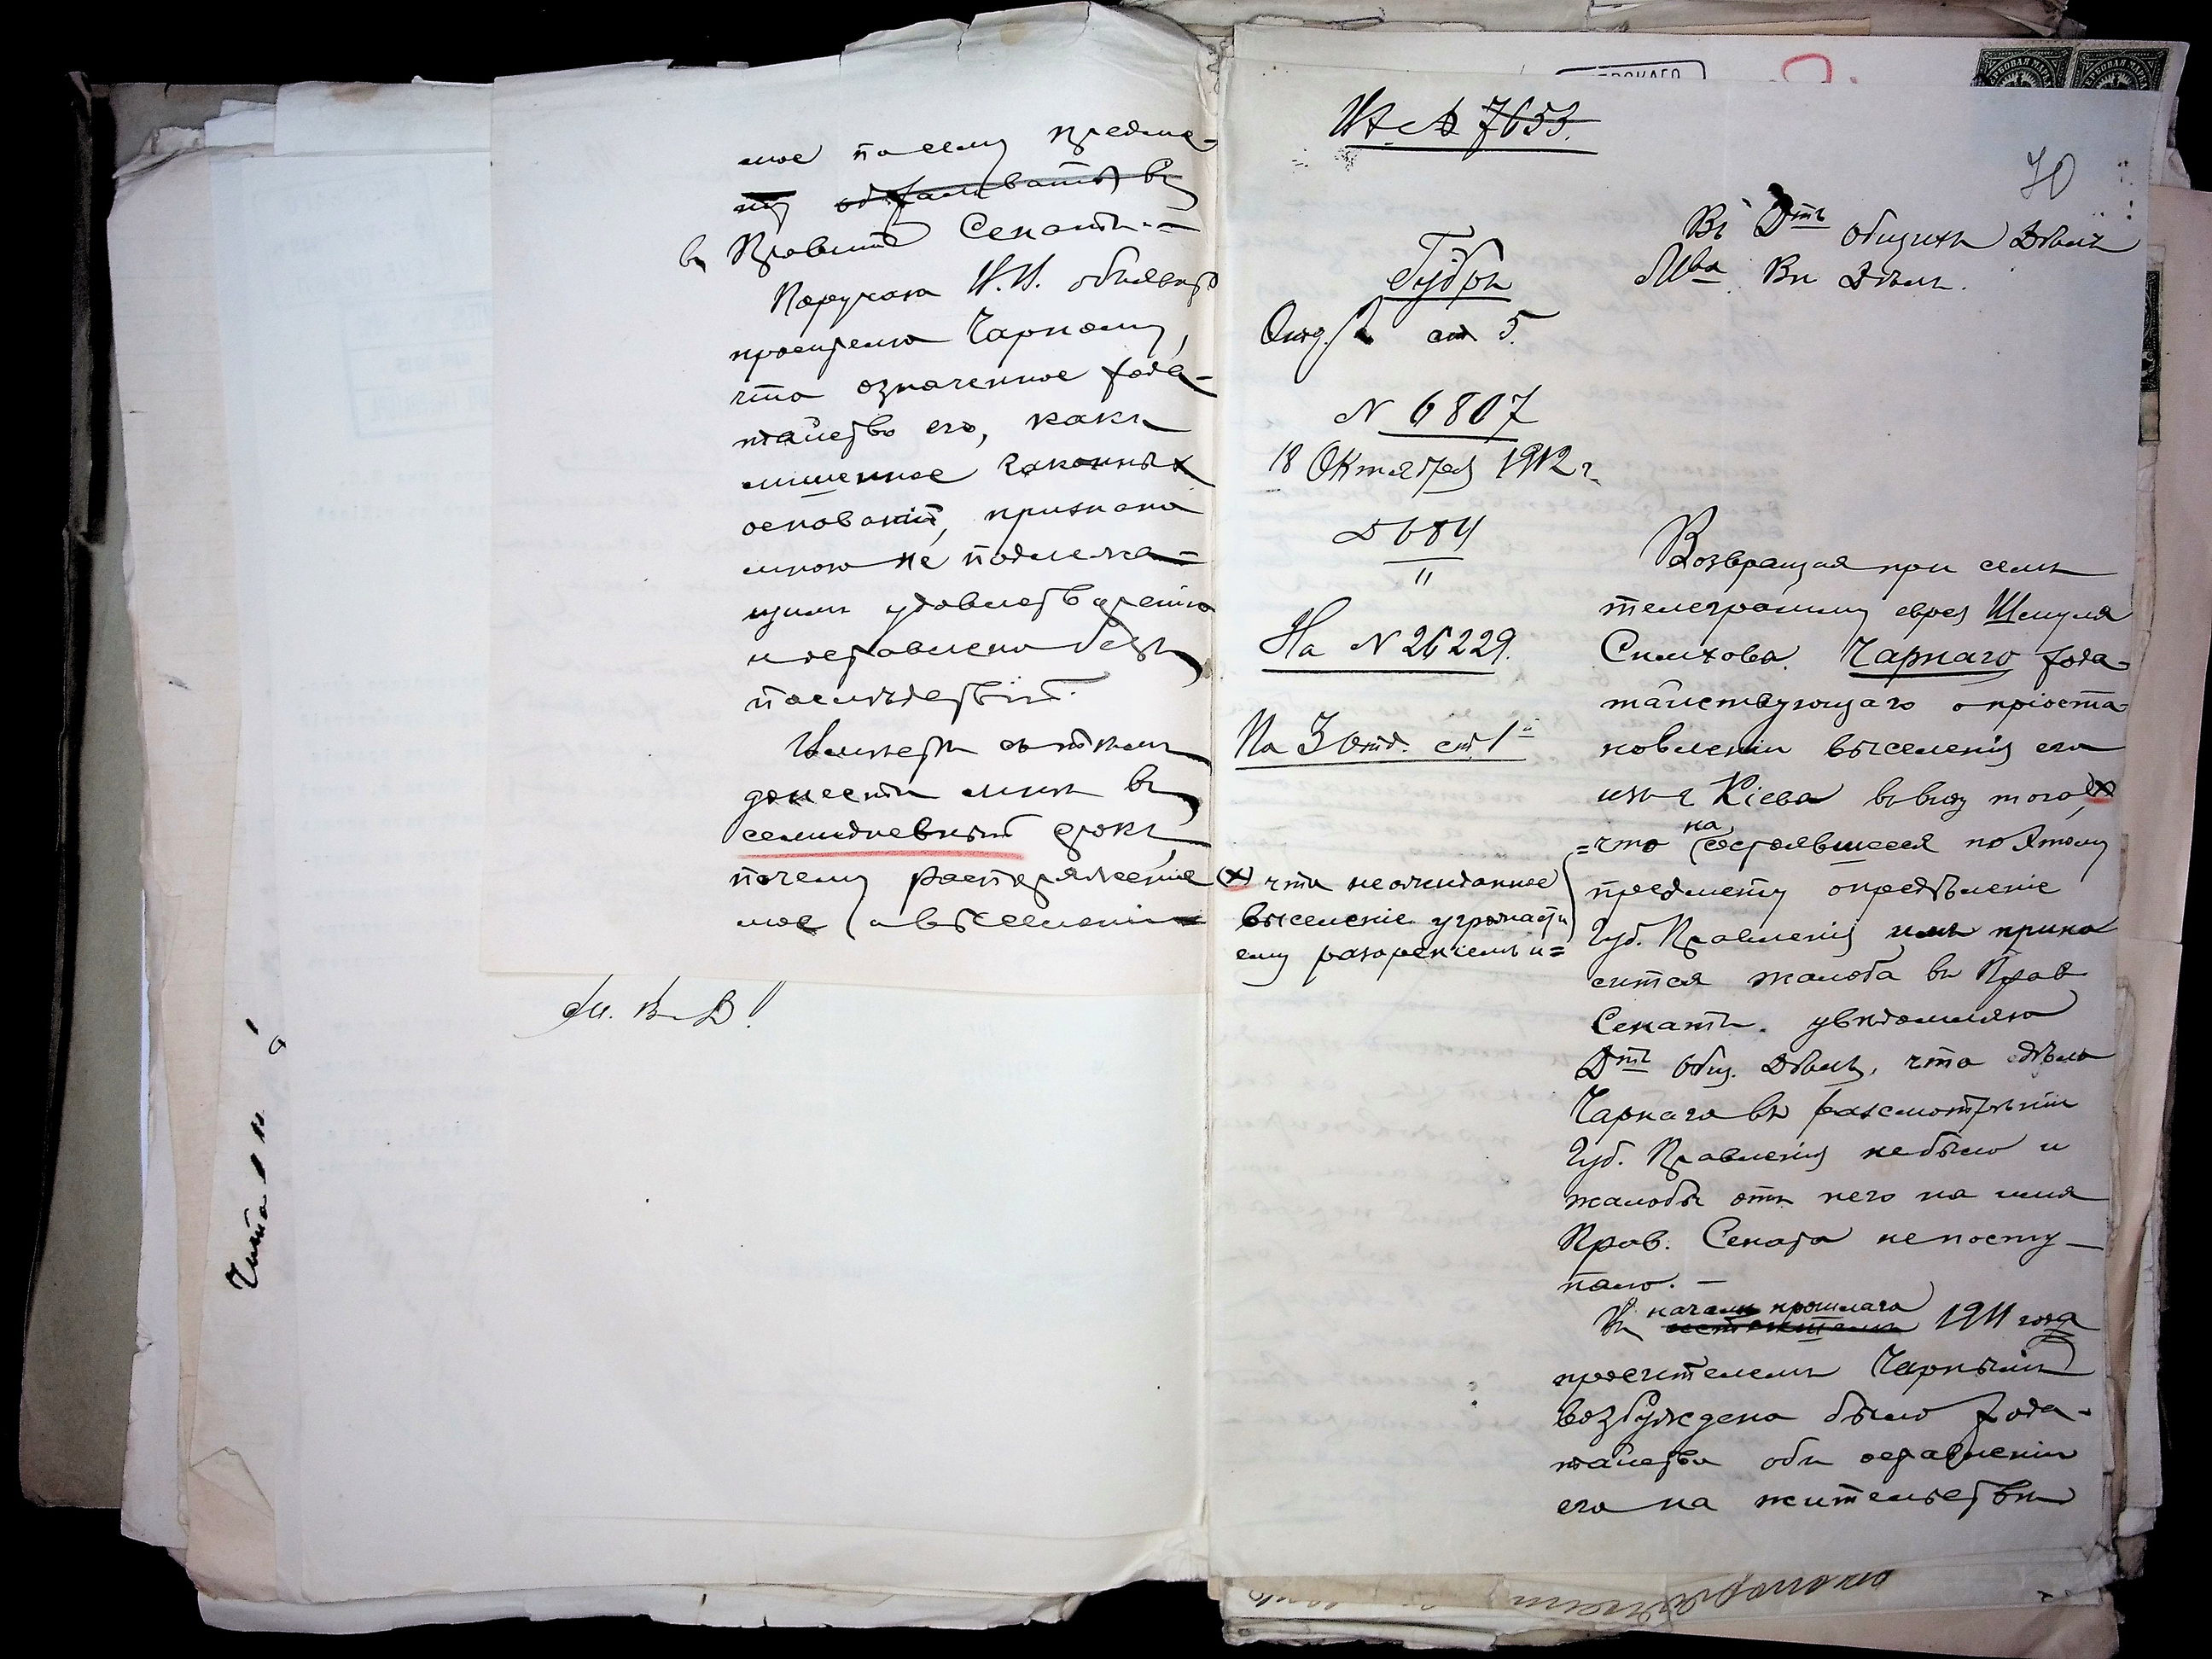 мое по сему предме-
ту обжаловать въ
въ Правит. Сенатъ.-
Поручаю И.И. объявить
просителю Чарному,
что означенное хода-
тайство его, какъ
лишенное законныхъ
основаній, признано
мною не подлежа-
щимъ удовлетворенію
и оставлено безъ
послѣдствій.
Вмѣстѣ съ тѣмъ
донести мнѣ въ
семидневный срокъ,
почему распоряженіе
мое о выселеніи
М. В. Д.
Читалъ
7653.
70
Въ Дтъ общихъ Дѣлъ
Мва Вн. Дѣлъ.
Губрн
Отд. 2 ст 5.
N 6807
18 Октября 1912 г.
684
II
На N 26229.
На 3 отд. ст. 1й
(х) что неожиданное
выселеніе угрожаетъ
ему разореніемъ и=
Возвращая при семъ
телеграмму еврея Шмуля
Симхова Чарнаго хода-
тайствующаго о пріоста-
новленіи выселенія его
изъ г Кіева въ виду того, (х)
=что на состоявшееся по этому
предмету опредѣленіе
Губ. Правленія имъ прино
сится жалоба въ Прав
Сенатъ. увѣдомляю
Дтъ Общ. Дѣлъ, что дѣла
Чарнаго въ разсмотрѣніи
Губ. Правленія не было и
жалобы отъ него на имя
Прав. Сената не посту-
пало. -
Въ началѣ прошлаго 1911 года
просителемъ Чарнымъ
возбуждено было хода-
тайство объ оставленіи
его на жительствѣ